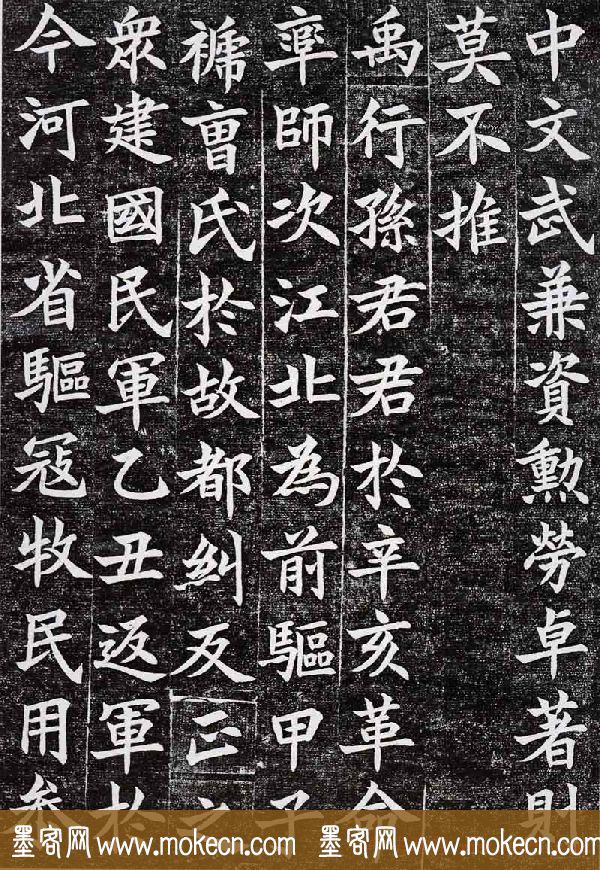 中文武兼資勳勞卓著則
莫不推
禹行孫君君於辛亥革命
率師次江北為前驅甲子
褫曺氏於故都糾反正之
眾建國民軍乙丑返軍於
今河北省驅冦牧民用
墨客网 www.mokecn.com 墨客网 www.mokecn.com